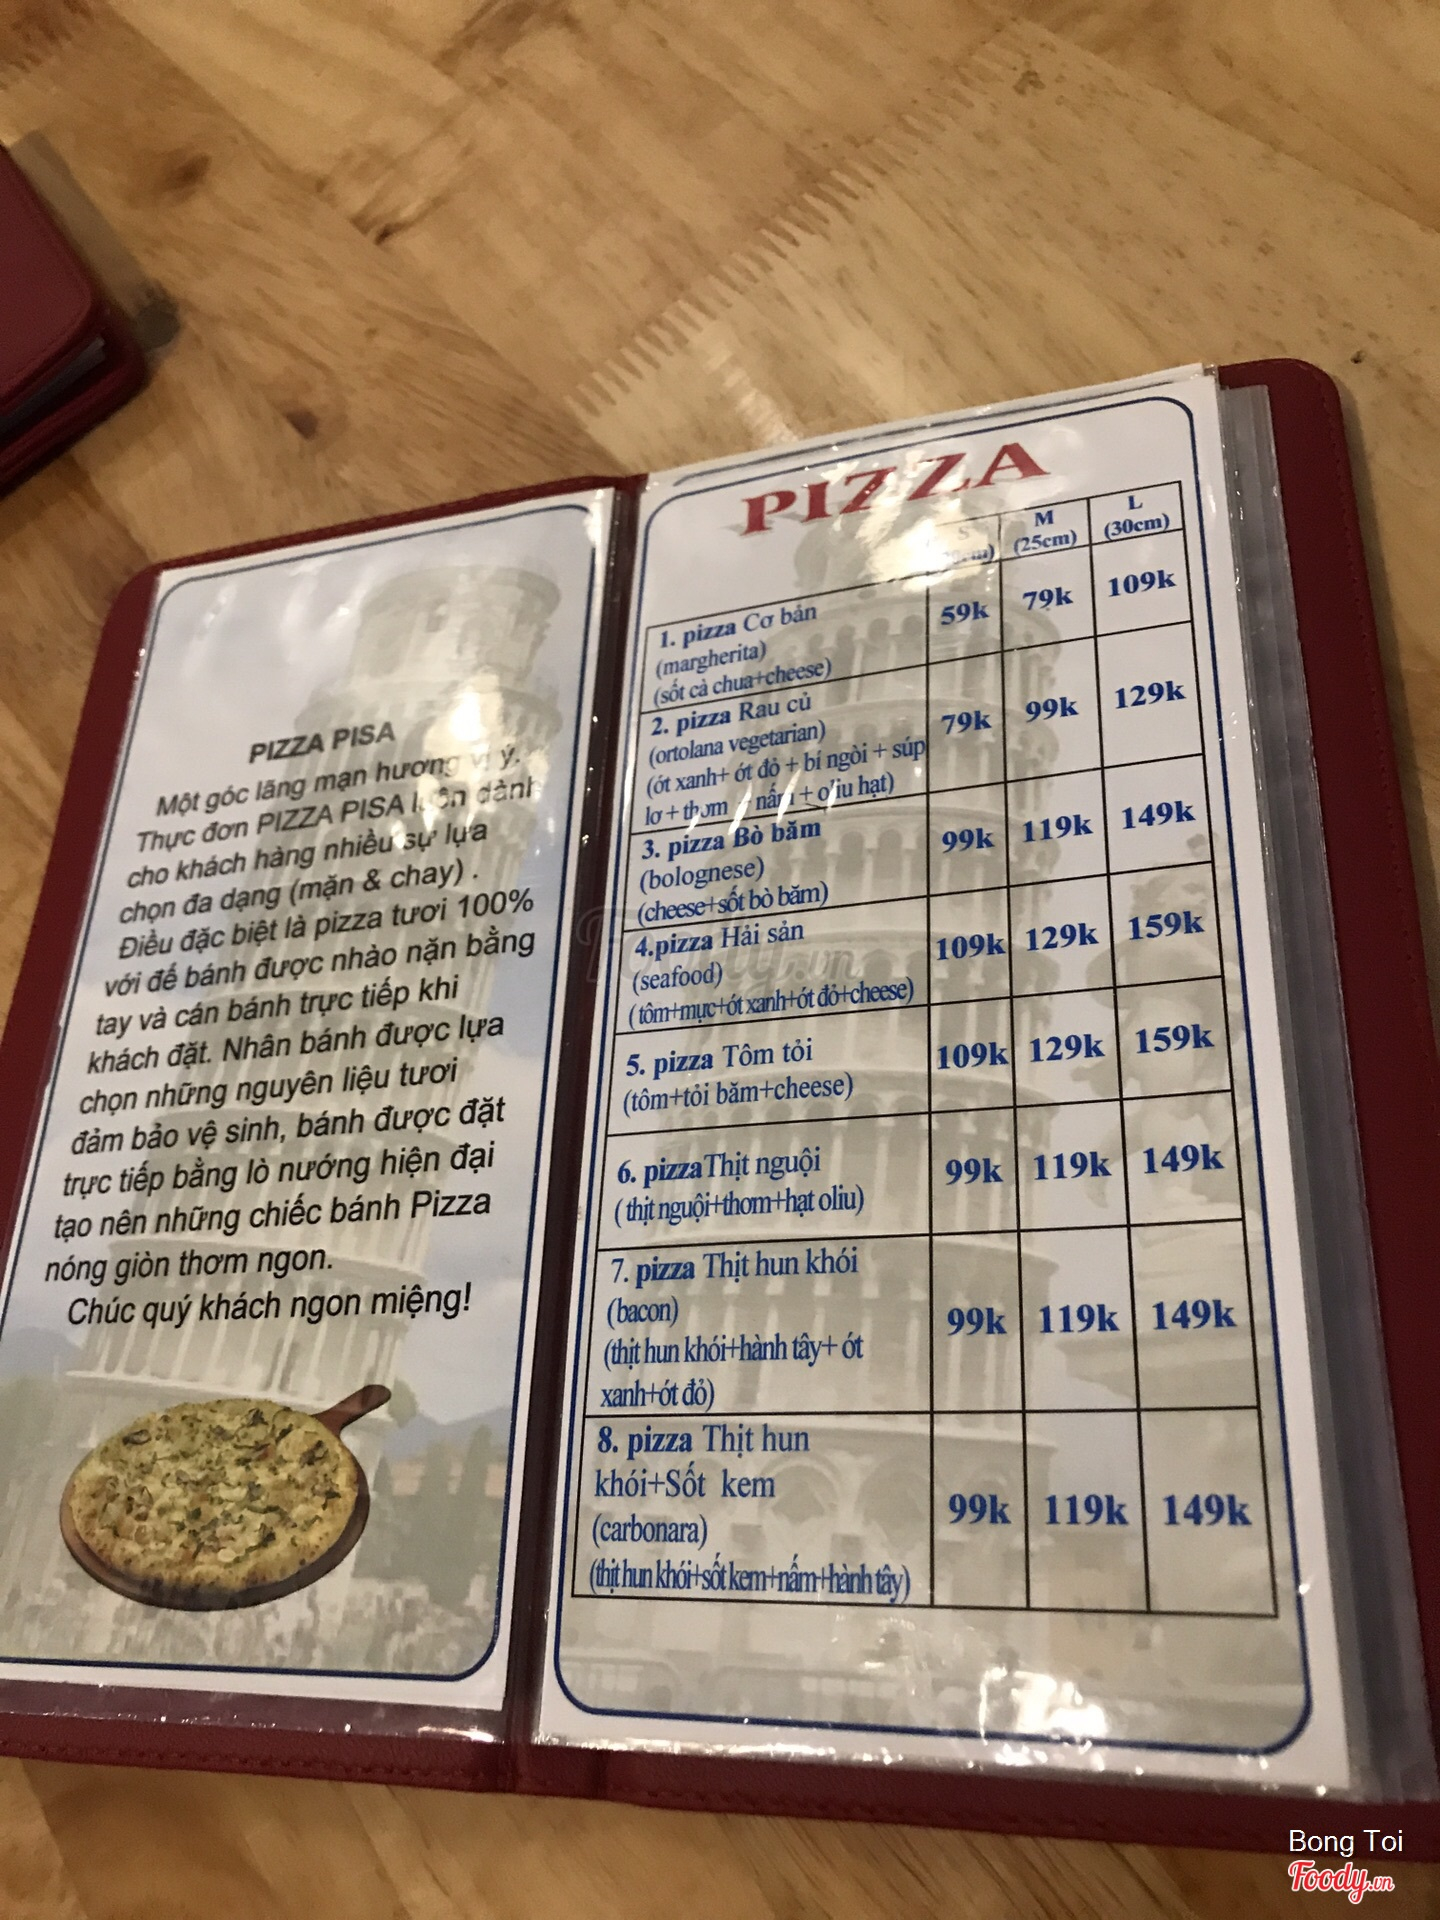 PIZZA PISA
Một góc lãng mạn hương vị ý.
Thực đơn PIZZA PISA luôn dành
cho khách hàng nhiều sự lựa
chọn đa dạng (mặn & chay) .
Điều đặc biệt là pizza tươi 100%
với đế bánh được nhào nặn bằng
tay và cán bánh trực tiếp khi
khách đặt. Nhân bánh được lựa
chọn những nguyên liệu tươi
đảm bảo vệ sinh, bánh được đặt
trực tiếp bằng lò nướng hiện đại
tạo nên những chiếc bánh Pizza
nóng giòn thơm ngon.
Chúc quý khách ngon miệng!
PIZZA
S M L
(25cm) (30cm)
1. pizza Cơ bản 59k 79k 109k
(margherita)
(sốt cà chua+cheese)
2. pizza Rau củ 79k 99k 129k
(ortolana vegetarian)
(ớt xanh+ ớt đỏ + bí ngòi + súp
lơ + thơm + nấm + oliu hạt)
3. pizza Bò băm 99k 119k 149k
(bolognese)
(cheese+sốt bò băm)
4.pizza Hải sản 109k 129k 159k
(seafood)
(tôm+mực+ớt xanh+ớt đỏ+cheese)
5. pizza Tôm tỏi 109k 129k 159k
(tôm+tỏi băm+cheese)
6. pizzaThịt nguội 99k 119k 149k
( thịt nguội+thơm+hạt oliu)
7. pizza Thịt hun khói 99k 119k 149k
(bacon)
(thịt hun khói+hành tây+ ớt
xanh+ớt đỏ)
8. pizza Thịt hun
khói+Sốt kem 99k 119k 149k
(carbonara)
(thịt hun khói+sốt kem+nấm+hành tây)
Foody.vn
Bong Toi
Foody.vn